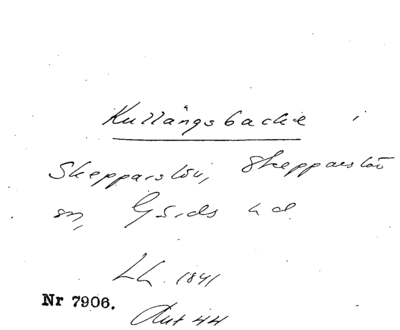 Kullängsbacke i
Skepparslöv, Skepparslöv
sn, Gärds hd.
LL. 1841
Nr 7906.
Akt 44